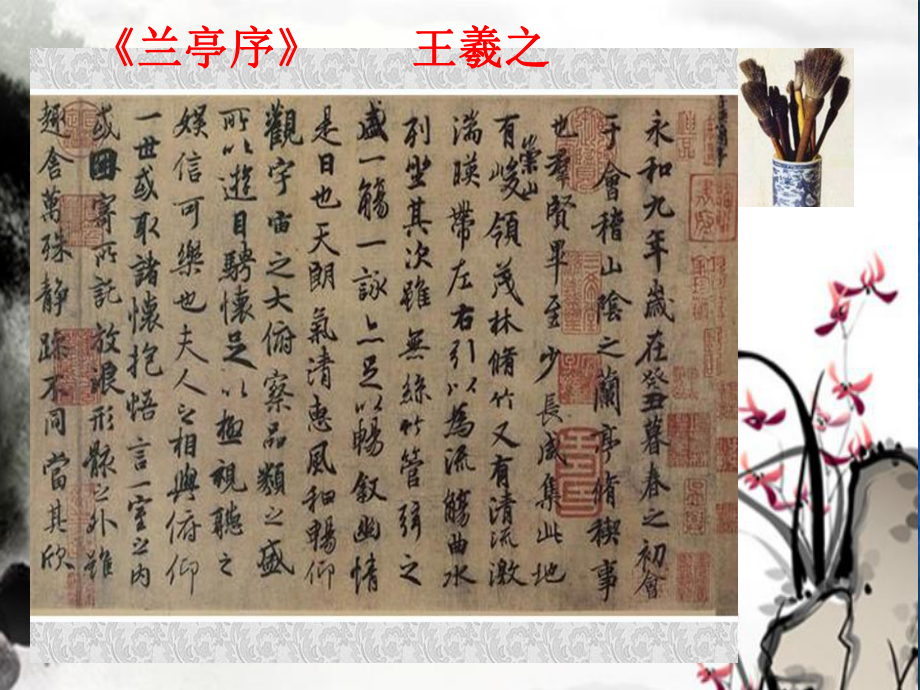 《兰亭序》 王羲之
永和九年歲在癸丑暮春之初會
于會稽山陰之蘭亭脩稧事
也羣賢畢至少長咸集此地
有崇山峻領茂林脩竹又有清流激
湍暎帶左右引以為流觴曲水
列坐其次雖無絲竹管弦之
盛一觴一詠亦足以暢敘幽情
是日也天朗氣清惠風和暢仰
觀宇宙之大俯察品類之盛
所以遊目騁懷足以極視聽之
娛信可樂也夫人之相與俯仰
一世或取諸懷抱悟言一室之內
或因寄所託放浪形骸之外雖
趣舍萬殊靜躁不同當其欣